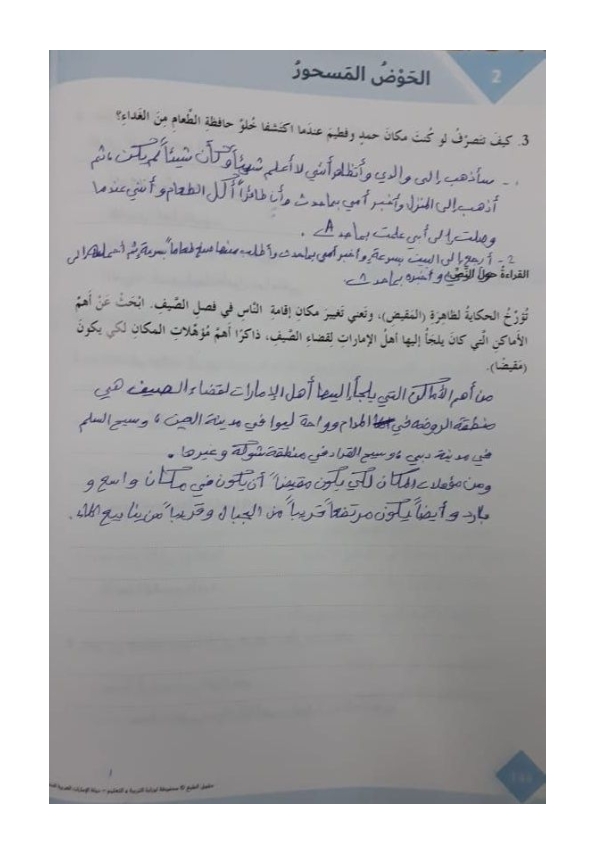 الحَوْضُ المَسحورُ
2
3. كيفَ تتصرّفُ لو كُنتَ مكانَ حمدٍ وفطيمَ عندَما اكتَشفا خُلوَّ حافظةِ الطّعامِ مِنَ الغَداءِ؟
1 - سأذهب إلى والدي وأتظاهر أنني لا أعلم شيئاً وكأن شيئاً لم يكن ، ثم
أذهب إلى المنزل وأخبر أمي بما حدث وأن طائراً أكل الطعام وأنني عندما
وصلت إلى أبي علمت بما حدث .
2 - أرجع إلى البيت بسرعة وأخبر أمي بما حدث وأطلب منها صنع طعاماً بسرعة ثم أحملها إلى
القراءةُ حولَ النَّصِّ:
وأخبره بما حدث
تُؤرّخُ الحكايةُ لظاهِرَةِ (المَقيضِ)، وتَعني تَغييرَ مكانِ إقامةِ النّاسِ في فصلِ الصَّيفِ. ابْحَثْ عَنْ أهمِّ
الأماكنِ الّتي كانَ يلجَأُ إليها أهلُ الإماراتِ لقضاءِ الصَّيفِ، ذاكرًا أهمَّ مُؤهّلاتِ المكانِ لكي يكونَ
(مَقيضًا).
من أهم الأماكن التي يلجأ إليها أهل الإمارات لقضاء الصيف هي
منطقة الروضه في المدام وواحة ليوا في مدينة العين ، وسيح السلم
في مدينة دبي ، وسيح القراد في منطقة شوكة وغيرها .
ومن مؤهلات المكان لكي يكون مقيضاً أن يكون في مكان واسع و
بارد وأيضاً يكون مرتفعاً قريباً من الجبال وقريباً من ينابيع الماء.
144
حقوق الطبع © محفوظة لوزارة التربية والتعليم - دولة الإمارات العربية